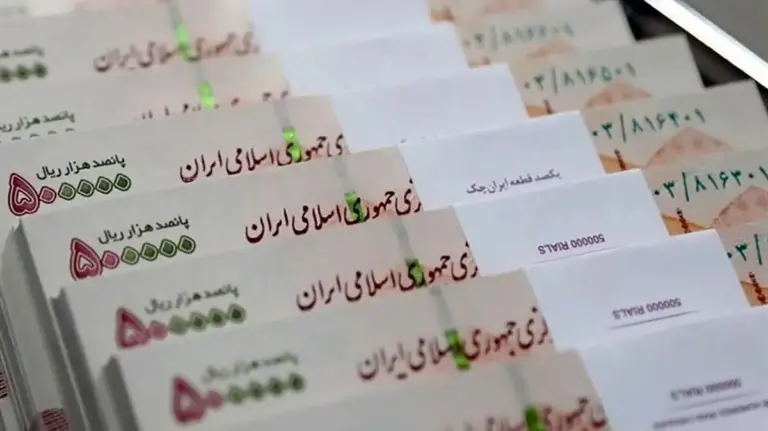 پانصد هزار ریال
جمهوری اسلامی ایران
۰۳/۸۱۶۵۰۱
پانصد هزار ریال
۵۰۰۰۰۰
جمهوری اسلامی ایران
یکصد قطعه ایران چک
۰۳/۸۱۶۴۰۱
پانصد هزار ریال
۵۰۰۰۰۰
جمهوری اسلامی ایران
500000 RIALS
۰۳/۸۱۶۳۰۱
پانصد هزار ریال
۵۰۰۰۰۰
جمهوری اسلامی ایران
500000 RIALS
پانصد هزار ریال
۵۰۰۰۰۰
جمهوری اسلامی ایران
500000 RIALS
جمهوری اسلامی ایران